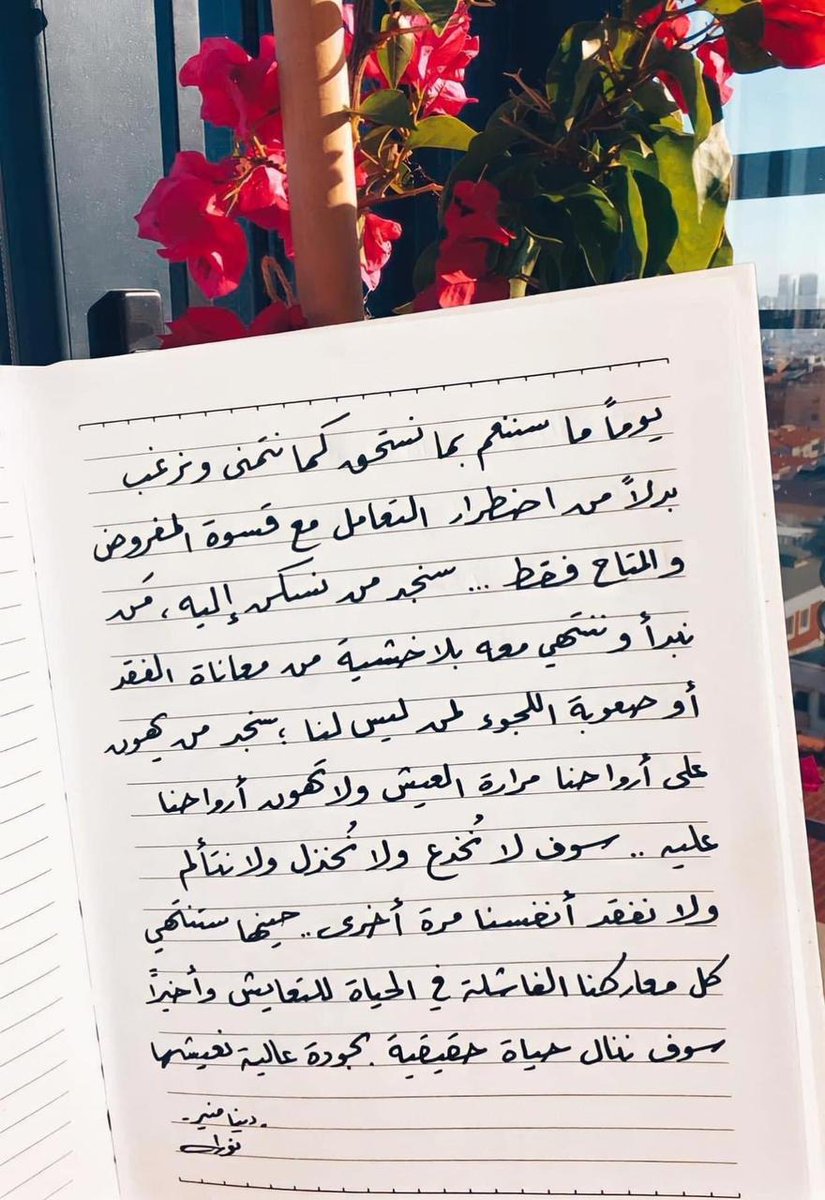 يوماً ما سننعم بما نستحق كما نتمنى ونرغب
بدلاً من اضطرار التعامل مع قسوة المفروض
والمتاح فقط ... سنجد من نسكن إليه، مَن
نبدأ وننتهي معه بلا خشية من معاناة الفقد
أو صعوبة اللجوء لمن ليس لنا ؛ سنجد من يهون
على أرواحنا مرارة العيش ولا تَهون أرواحنا
عليه .. سوف لا نُخدع ولا نُخذل ولا نتألم
ولا نفقد أنفسنا مرة أخرى .. حينها ستنتهي
كل معاركنا الفاشلة في الحياة للتعايش وأخيراً
سوف ننال حياة حقيقية بجودة عالية نعيشها
- دينا منير -